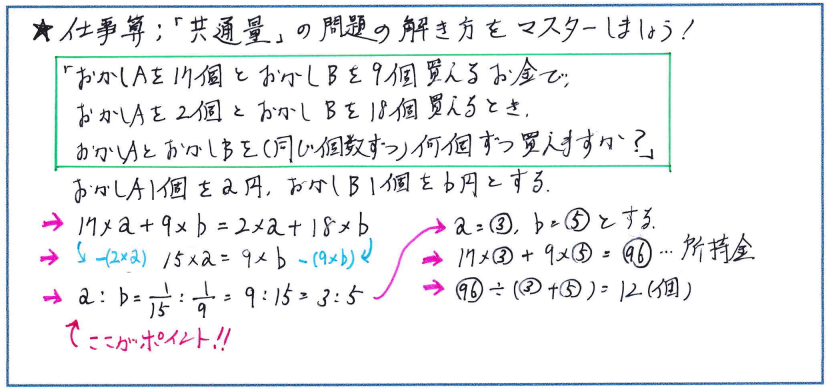 ★仕事算；「共通量」の問題の解き方をマスターしましょう！
「おかしAを17個とおかしBを9個買えるお金で,
おかしAを2個とおかしBを18個買えるとき,
おかしAとおかしBを(同じ個数ずつ)何個ずつ買えますか？」
おかしA1個をa円, おかしB1個をb円とする.
→ 17×a+9×b=2×a+18×b
→ -(2×a) 15×a=9×b -(9×b)
→ a:b=1/15:1/9=9:15=3:5
ここがポイント!!
→ a=③, b=⑤とする.
→ 17×③+9×⑤=㊈㊅…所持金
→ ㊈㊅÷(③+⑤)=12(個)